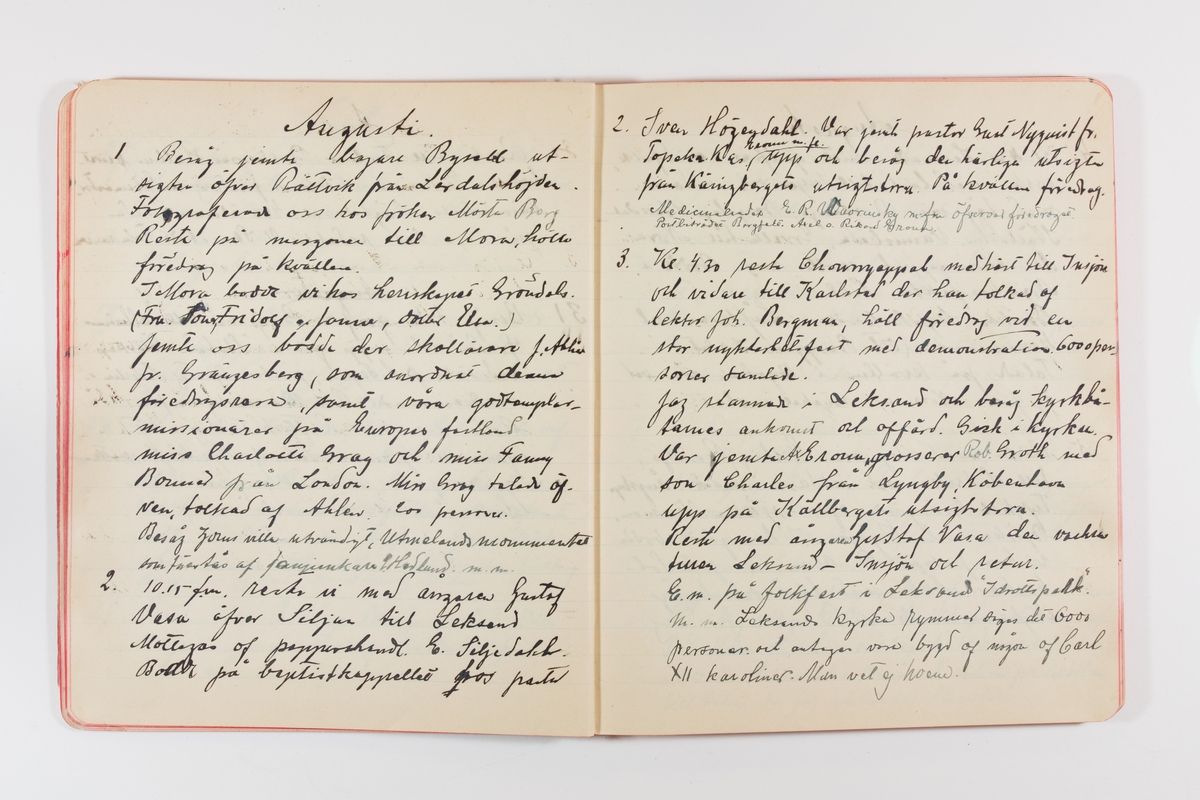 Augusti.
1 Besåg jemte bagare Bysell ut-
sigten öfver Rättvik från Lerdalshöjden.
Fotograferade oss hos fröken Märta Berg
Reste på morgonen till Mora, höllo
föredrag på kvällen.
I Mora bodde vi hos herrskapet Gröndals.
(Fru. Fridolf o. Janne, dotter Elsa.)
Jemte oss bodde der skollärare J. Ahlén
fr. Grangesberg, som anordnat denna
föredragsresa, samt våra godtemplar-
missionärer på Europas fastland
miss Charlotte Gray och miss Fanny
från London. Miss Gray talade äf-
ven, tolkad af Ahlén. personer.
Besåg Zorns villa utvändigt, Utmelandsmonumentet
som af fanjunkare Hedlund. m.m.
2. 10.15 f.m. reste vi med ångaren Gustaf
Vasa öfver Siljan till Leksand
Mottagas af pappershandl. E. Siljedahl.
Bodde på baptistkapellet hos pastor
2. Sven Högendahl. Var jemte pastor Gust Nyquist fr.
Topeka Kas, Kronu m.fl. upp och besåg den härliga utsigten
från Käringbergets utsigtstorn. På kvällen föredrag.
Medicinalrådet E. R. m.fru öfvervar föredraget
Postiljonen Bergfalk. Axel o. Rikard Kronu
3. Kl. 4.30 reste Chownyappal med häst till Insjön
och vidare till Karlstad der han tolkad af
lektor Joh. Bergman, höll föredrag vid en
stor nykterhetsfest med demonstration. 6000 per-
soner samlade.
Jag stannade i Leksand och besåg kyrkbå-
tarnes ankomst och affärd. Gick i kyrkan.
Var jemte A. Kronu, grosserer Rob. Groth med
son Charles från Lyngby, Köbenhavn
upp på Källbergets utsigtstorn.
Reste med ångaren Gustaf Vasa den vackra
turen Leksand – Insjön och retur.
E.m. på folkfest i Leksand "Idrottspark".
m.m. Leksands kyrka rymmer säges det 6000
personer och antages vara bygd af någon af Carl
XII karoliner. Man vet ej hvem.